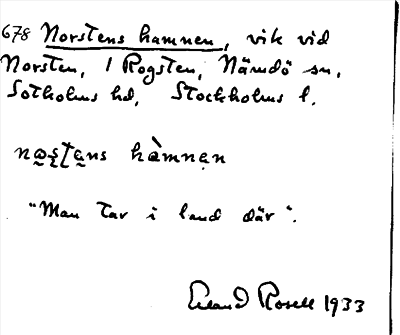 678 Norstens hamnen, vik vid
Norsten, 1 Rogsten, Nämdö sn.
Sotholms hd, Stockholms l.
hàmnen
"Man tar i land där".
Erland Rosell 1933